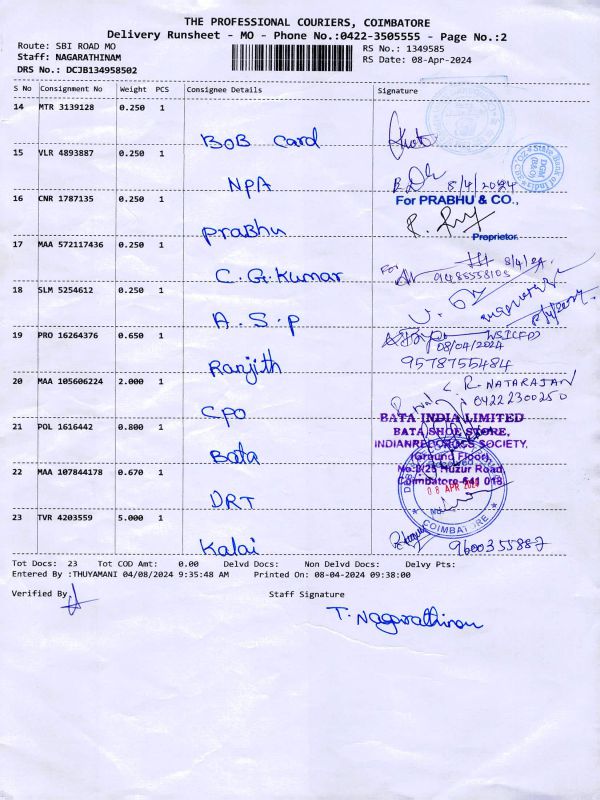 THE PROFESSIONAL COURIERS, COIMBATORE
Delivery Runsheet - MO - Phone No.:0422-3505555 - Page No.:2
Route: SBI ROAD MO
RS No.: 1349585
Staff: NAGARATHINAM
RS Date: 08-Apr-2024
DRS No.: DCJB134958502
S No Consignment No Weight PCS Consignee Details Signature
14 MTR 3139128 0.250 1
BOB Card
15 VLR 4893887 0.250 1
NPA 8/4/2024
16 CNR 1787135 0.250 1
For PRABHU & CO.,
Prabhu
Proprietor
17 MAA 572117436 0.250 1
For 8/4/24
C.G.Kumar
18 SLM 5254612 0.250 1
A.S.P
19 PRO 16264376 0.650 1
08/04/2024
Ranjith 9578755484
20 MAA 105606224 2.000 1
R. NATARAJAN
CPO 04222300250
BATA INDIA LIMITED
21 POL 1616442 0.800 1
BATA SHOE STORE,
INDIAN RED CROSS SOCIETY,
Bata (Ground Floor)
22 MAA 107844178 0.670 1
Huzur Road,
Coimbatore-641 018
DRT 08 APR
23 TVR 4203559 5.000 1
COIMBATORE
Kalai 9600355887
Tot Docs: 23 Tot COD Amt: 0.00 Delvd Docs: Non Delvd Docs: Delvy Pts:
Entered By :THUYAMANI 04/08/2024 9:35:48 AM Printed On: 08-04-2024 09:38:00
Verified By Staff Signature
T. Nagarathinam